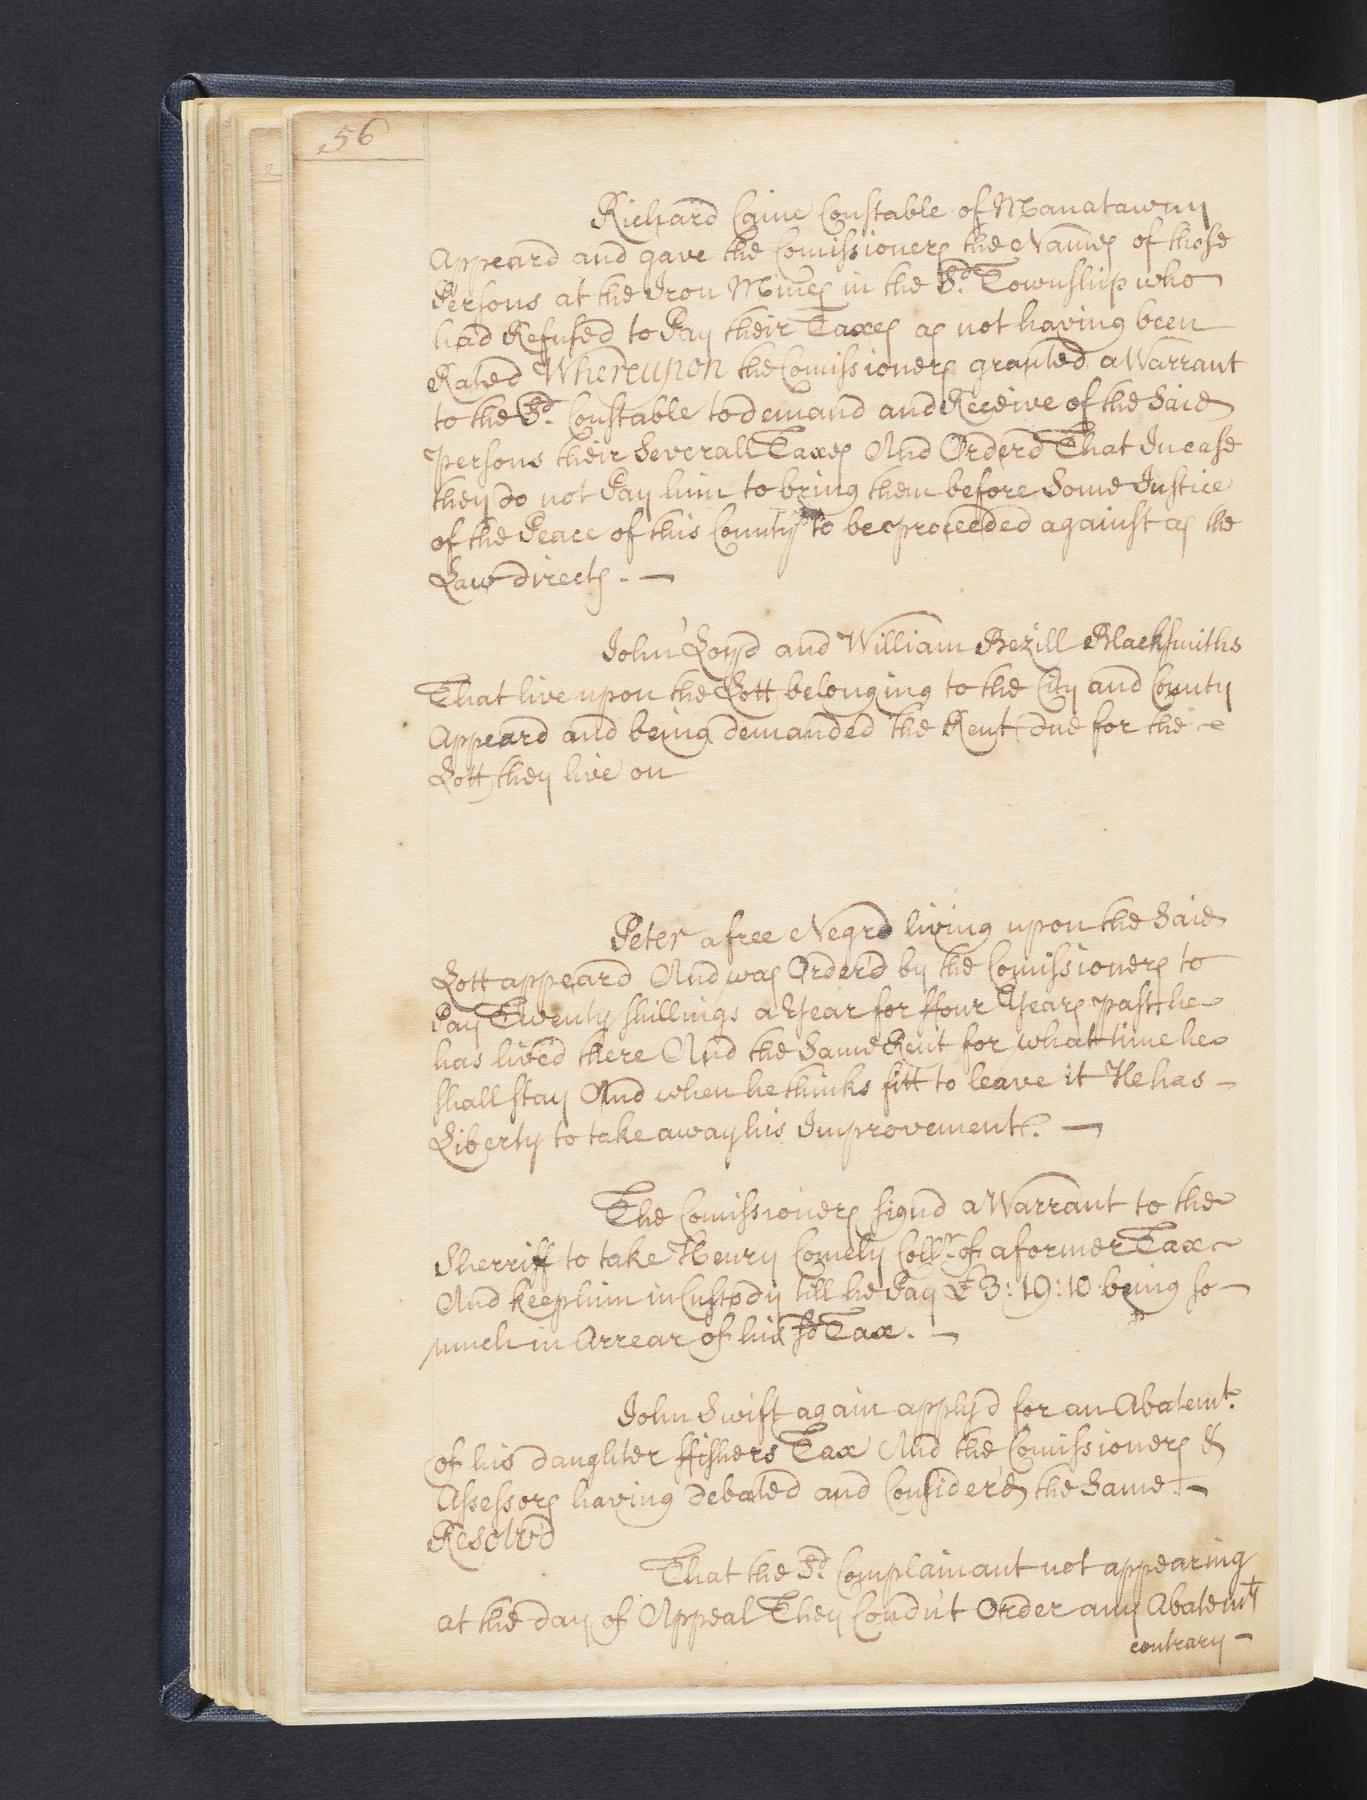 56
Richard Caine Constable of Manatawny
Appeard and gave the Comissioners the Names of those
Persons at the Iron Mines in the Sd. Township who
had Refused to Pay their Taxes as not having been
Rated Whereupon the Comissioners granted a Warrant
to the Sd. Constable to demand and Receive of the Said
persons their Severall Taxes And Orderd That In case
they do not Pay him to bring them before Some Justice
of the Peace of this County to be proceeded against as the
Law directs. —
John Loyd and William Bezill Blacksmiths
That live upon the Lott belonging to the City and County
Appeard and being demanded the Rent due for the
Lott they live on
Peter a free Negro living upon the Said
Lott appeard And was Orderd by the Comissioners to
Pay Twenty shillings a Year for ffour Years past he
has lived there And the Same Rent for what time he
shall stay And when he thinks fitt to leave it He has —
Liberty to take away his Improvements. —
The Comissioners signd a Warrant to the
Sherriff to take Henry Comely Collr. of a former Tax
And keep him in Custody till he Pay £3:19:10 being so —
much in Arrear of his sd Tax. —
John Swift again apply'd for an Abatemt.
of his daughter ffishers Tax And the Comissioners &
Assessors having debated and Consider'd the Same. —
Resolv'd
That the Sd. Complainant not appearing
at the day of Appeal They Coud'n't Order any Abatemt
contrary —